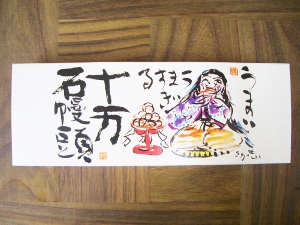 うまい
うま
すぎ
る
十万
石饅頭